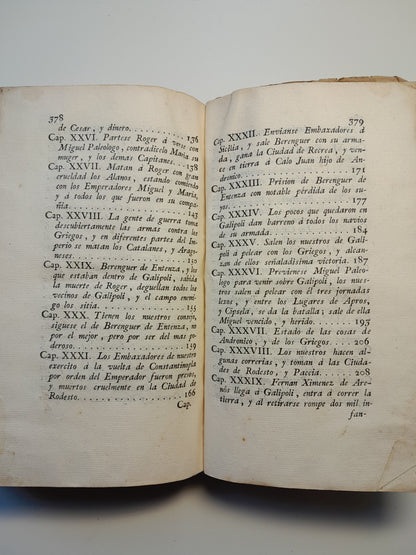 378
de Cesar, y dinero. . . . . . . . . . . . . 136
Cap. XXVI. Partese Roger à verse con
Miguel Paleologo, contradicelo Maria su
muger, y los demas Capitanes. . . . 138
Cap. XXVII. Matan á Roger con gran
crueldad los Alanos, estando comiendo
con los Emperadores Miguel y Maria,
y á todos los que fueron en su compa-
ñia. . . . . . . . . . . . . . . . . . . . 143
Cap. XXVIII. La gente de guerra toma
descubiertamente las armas contra los
Griegos, y en diferentes partes del Im-
perio se matan los Catalanes, y Arago-
neses. . . . . . . . . . . . . . . . . . . 150
Cap. XXIX. Berenguer de Entenza, y los
que estaban dentro de Galipoli, sabida
la muerte de Roger, degüellan todos los
vecinos de Galipoli, y el campo enemi-
go los sitia. . . . . . . . . . . . . . . 155
Cap. XXX. Tienen los nuestros consejo,
siguese el de Berenguer de Entenza, no
por el mejor, pero por ser del mas po-
deroso. . . . . . . . . . . . . . . . . . 159
Cap. XXXI. Los Embaxadores de nuestro
exercito á la vuelta de Constantinopla
por orden del Emperador fueron presos,
y muertos cruelmente en la Ciudad de
Rodesto. . . . . . . . . . . . . . . . . 166
Cap.
379
Cap. XXXII. Envianse Embaxadores á
Sicilia, y sale Berenguer con su arma-
da, gana la Ciudad de Recrea, y ven-
ce en tierra á Calo Juan hijo de An-
dronico. . . . . . . . . . . . . . . . . 171
Cap. XXXIII. Prision de Berenguer de
Entenza con notable pérdida de los su-
yos. . . . . . . . . . . . . . . . . . . . 177
Cap. XXXIV. Los pocos que quedaron en
Galipoli dan barreno á todos los navios
de su armada. . . . . . . . . . . . . . 184
Cap. XXXV. Salen los nuestros de Gali-
poli á pelear con los Griegos, y alcan-
zan de ellos señaladisima victoria. 187
Cap. XXXVI. Previenese Miguel Paleo-
logo para venir sobre Galipoli, los nues-
tros salen á pelear con él tres jornadas
lexos, y entre los Lugares de Apros,
y Cipsela, se da la batalla; sale de ella
Miguel vencido, y herido. . . . . . 195
Cap. XXXVII. Estado de las cosas de
Andronico, y de los Griegos. . . . . 206
Cap. XXXVIII. Los nuestros hacen al-
gunas correrias, y toman á las Ciuda-
des de Rodesto, y Paccia. . . . . . 208
Cap. XXXIX. Fernan Ximenez de Are-
nós llega á Galipoli, entra á correr la
tierra, y al retirarse rompe dos mil in-
fan-